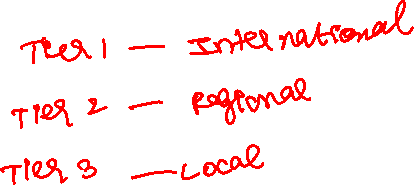 Tier 1 — International
Tier 2 — Regional
Tier 3 — Local